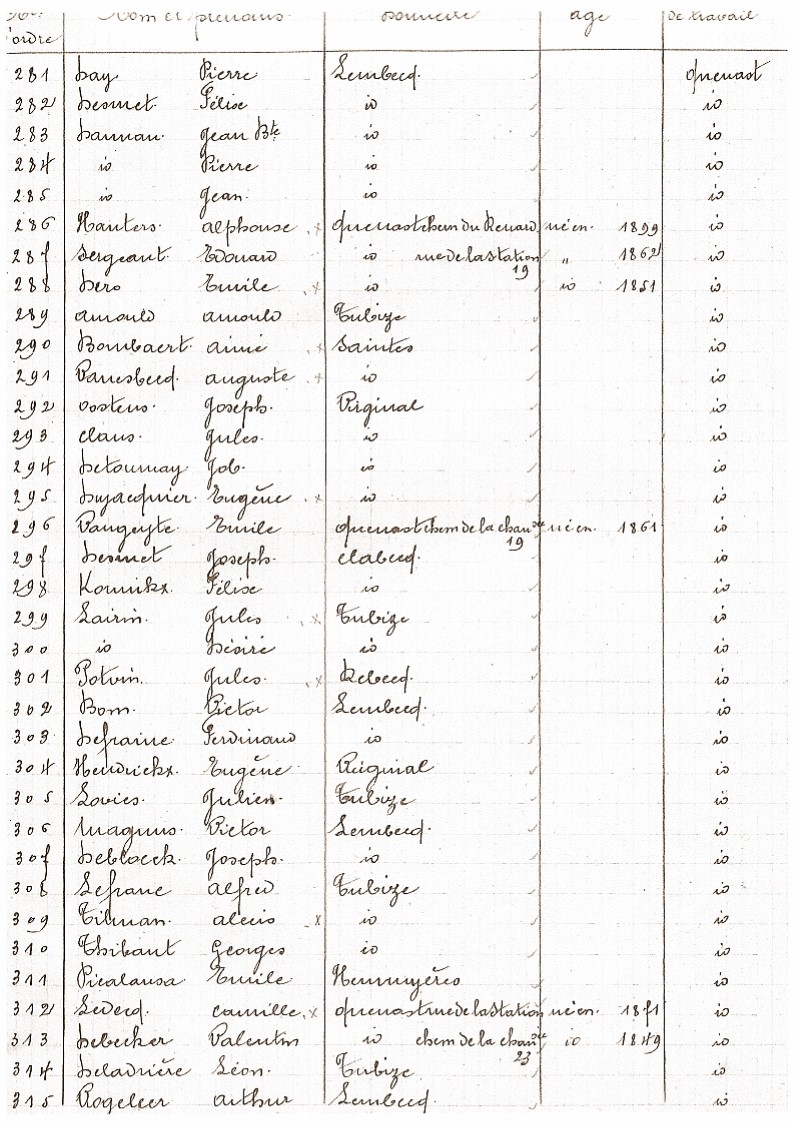 Nos Nom et prénoms domicile age de travail
d'ordre
281 Day Pierre Lembecq. Quenast
282 Desmet Félise id id
283 Dannau. Jean Bte id id
284 id Pierre id id
285 id Jean. id id
286 Hauters. alphonse x Quenast chem du Renard né en. 1899 id
287 Sergeant. Edouard id rue de la Station 19 " 1862 id
288 Dero Emile x id id 1851 id
289 arnould arnould Tubize id
290 Bombaert. aimé x Saintes id
291 Vanesbecq. auguste x id id
292 oostens. Joseph. Virginal id
293 claus. Jules. id id
294 Detournay Job. id id
295 Dujacquier. Eugène x id id
296 Vangeyte. Emile Quenast chem de la chaussée 19 né en. 1861 id
297 Desmet Joseph. clabecq. id
298 Konnikx. Félise id id
299 Lairin. Jules x Tubize id
300 id Désiré id id
301 Potvin. Jules. x Rebecq. id
302 Bom. Victor Lembecq. id
303 Defraine. Ferdinand id id
304 Hendrickx. Eugène Virginal id
305 Lovies. Julien. Tubize id
306 Magnus. Victor Lembecq. id
307 Deblock. Joseph. id id
308 Lefranc alfred Tubize id
309 Tilman. alexis x id id
310 Thibaut Georges id id
311 Picalausa Emile Hennuyères id
312 Leclercq. camille x Quenast rue de la Station né en. 1871 id
313 Debecker Valentin id chem de la chaussée 23 id 1849 id
314 Deladrière Léon. Tubize id
315 Rogeleer arthur Lembecq. id